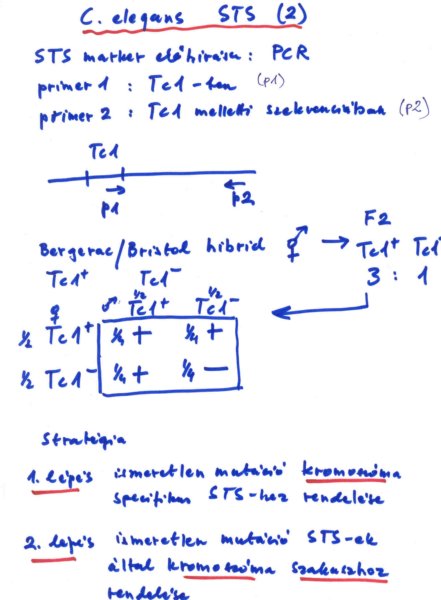 C. elegans STS (2)
STS marker előhívása: PCR
primer 1 : Tc1-ben (p1)
primer 2 : Tc1 melletti szekvenciában (p2)
Tc1
p1 p2
Bergerac/Bristol hibrid ⚥ → F2
Tc1+ Tc1- Tc1+ Tc1-
3 : 1
♀ ♂ 1/2 Tc1+ 1/2 Tc1-
1/2 Tc1+ 1/4 + 1/4 +
1/2 Tc1- 1/4 + 1/4 -
Stratégia
1. lépés ismeretlen mutáció kromoszóma
specifikus STS-hez rendelése
2. lépés ismeretlen mutáció STS-ek
által kromoszóma szakaszhoz
rendelése